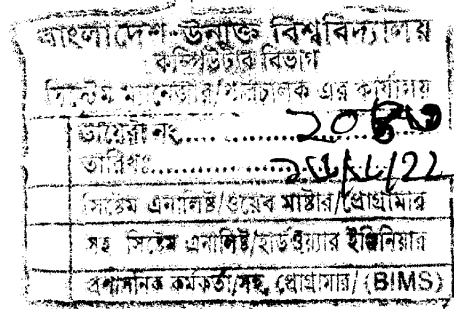 বাংলাদেশ উন্মুক্ত বিশ্ববিদ্যালয়
কম্পিউটার বিভাগ
সিস্টেম ম্যানেজার/পরিচালক এর কার্যালয়
ডায়েরী নং
তারিখঃ
সিস্টেম এনালিষ্ট/ওয়েব মাষ্টার/প্রোগ্রামার
সহ সিস্টেম এনালিষ্ট/হার্ডওয়্যার ইঞ্জিনিয়ার
প্রশাসনিক কর্মকর্তা/সহ, প্রোগ্রামার/ (BIMS)